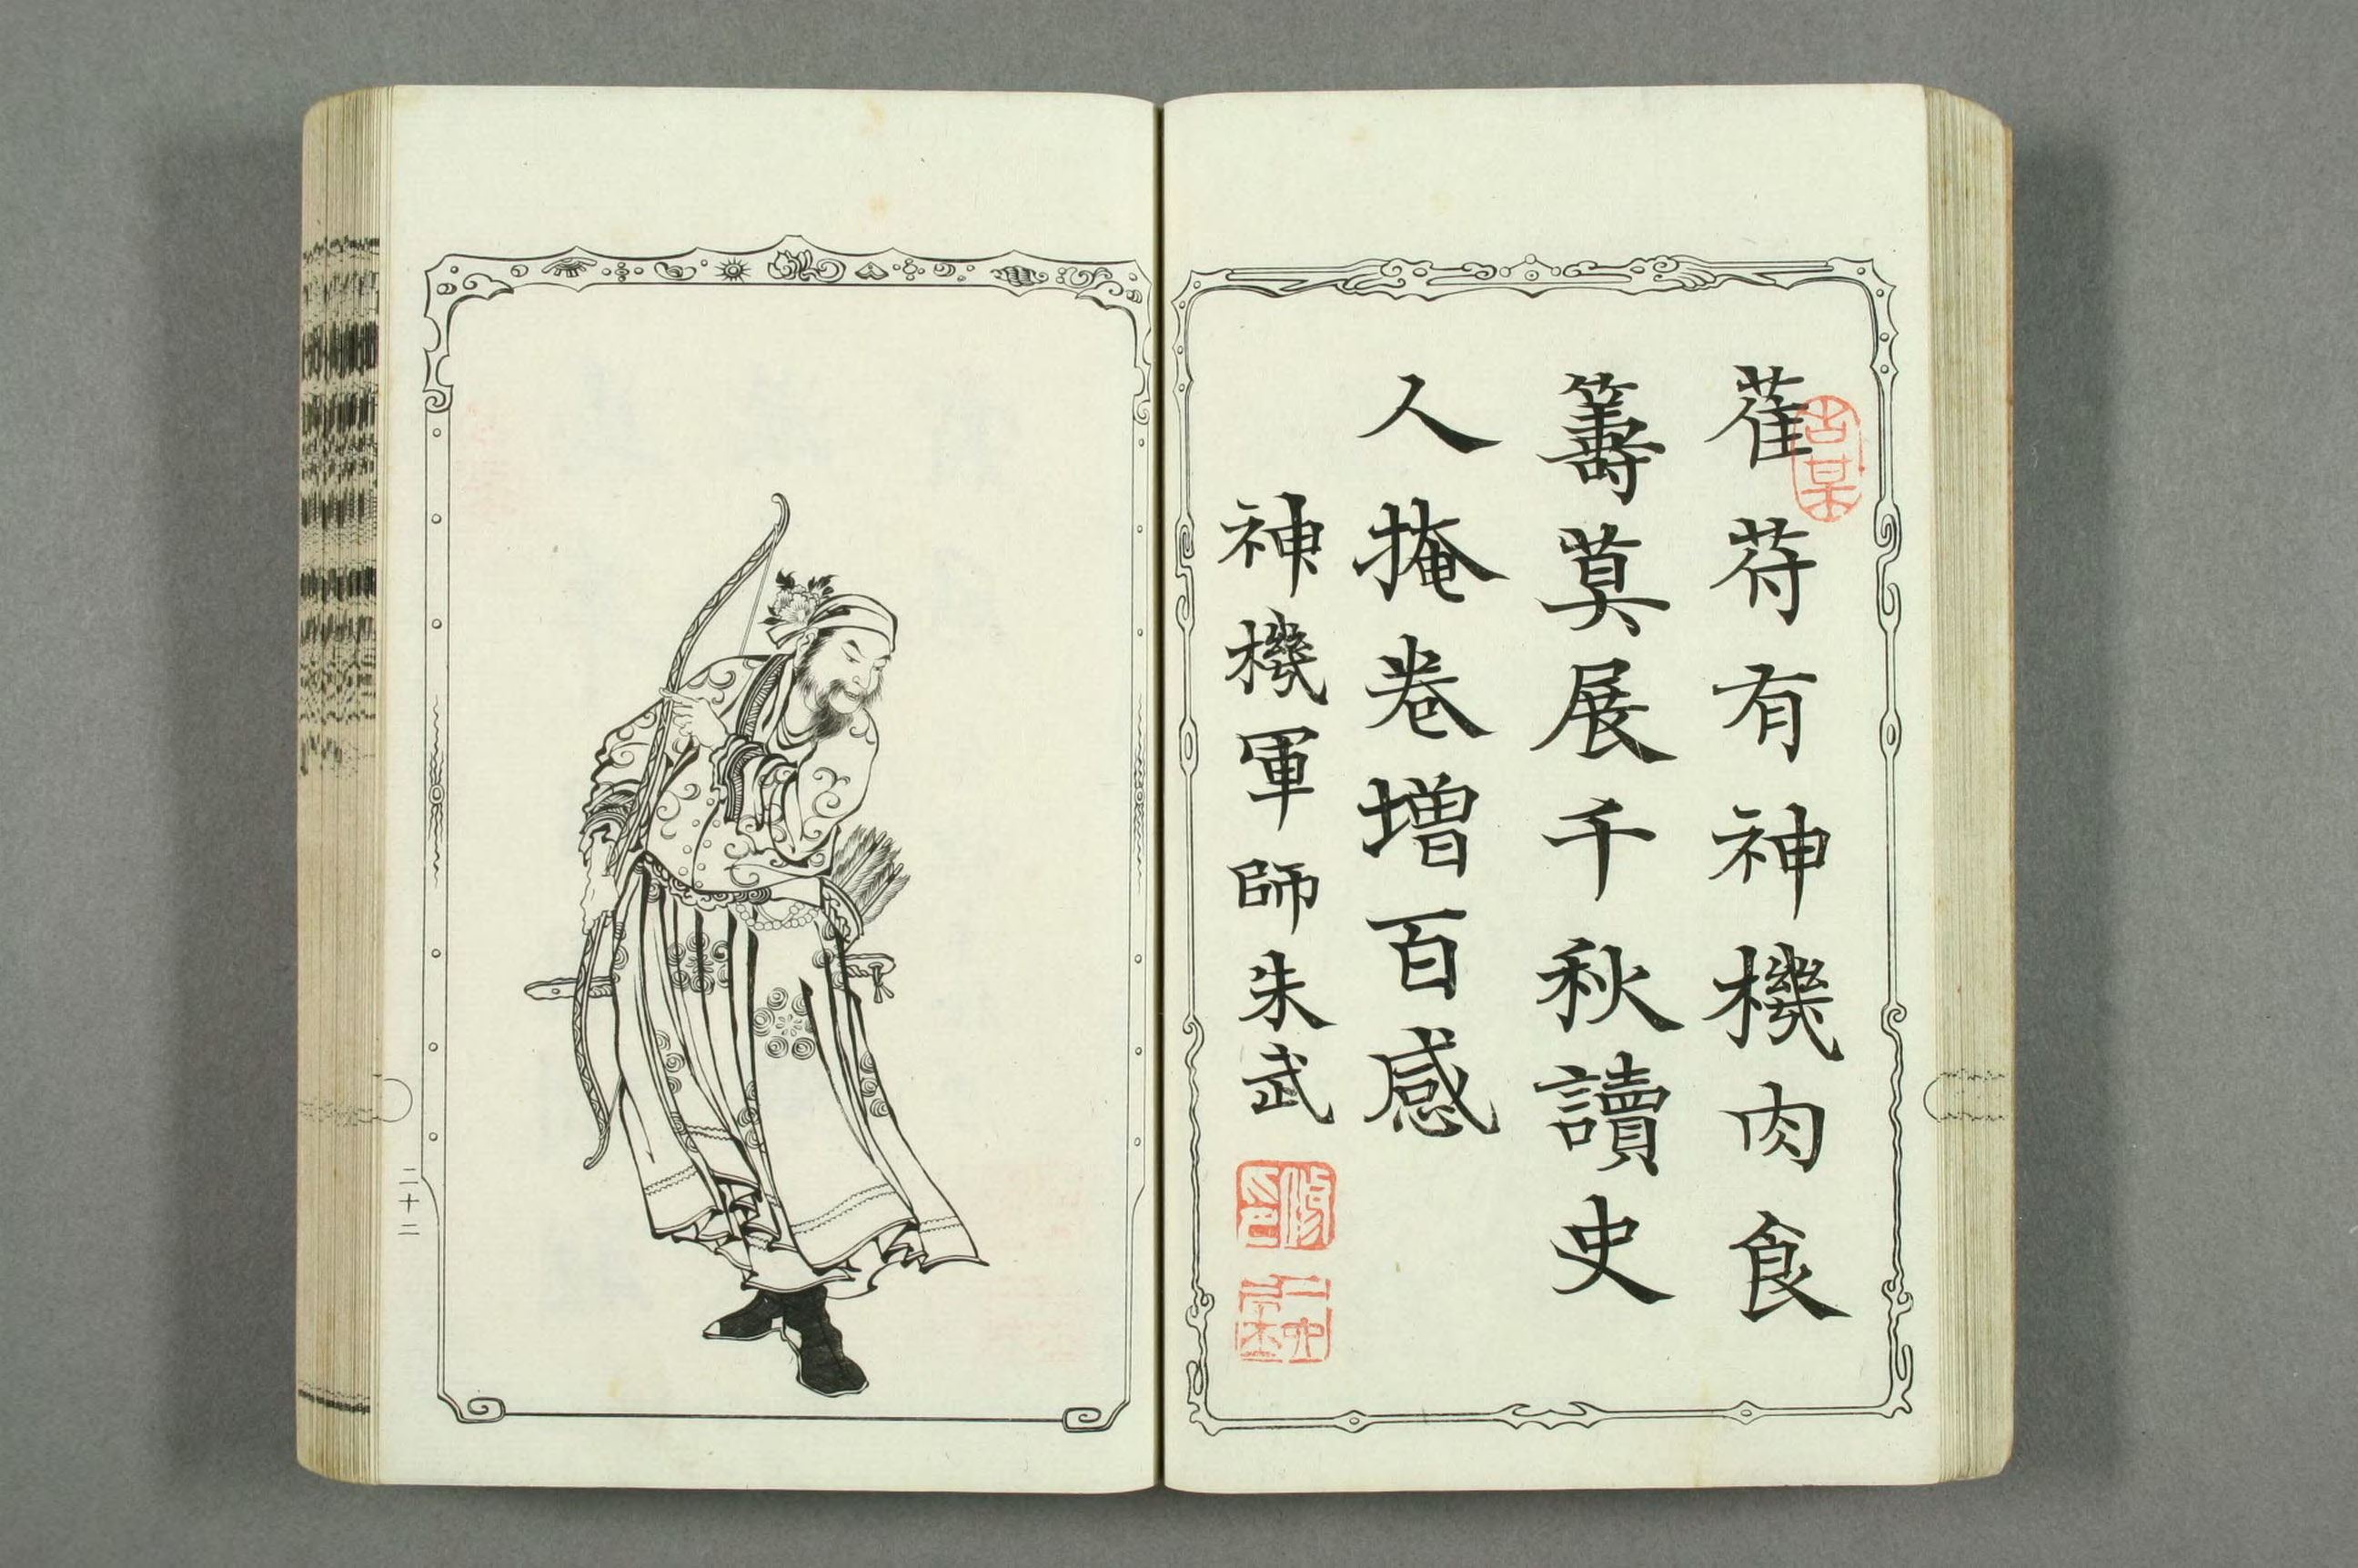 萑苻有神機肉食
籌莫展千秋讀史
人掩卷增百感
神機軍師朱武
二十二